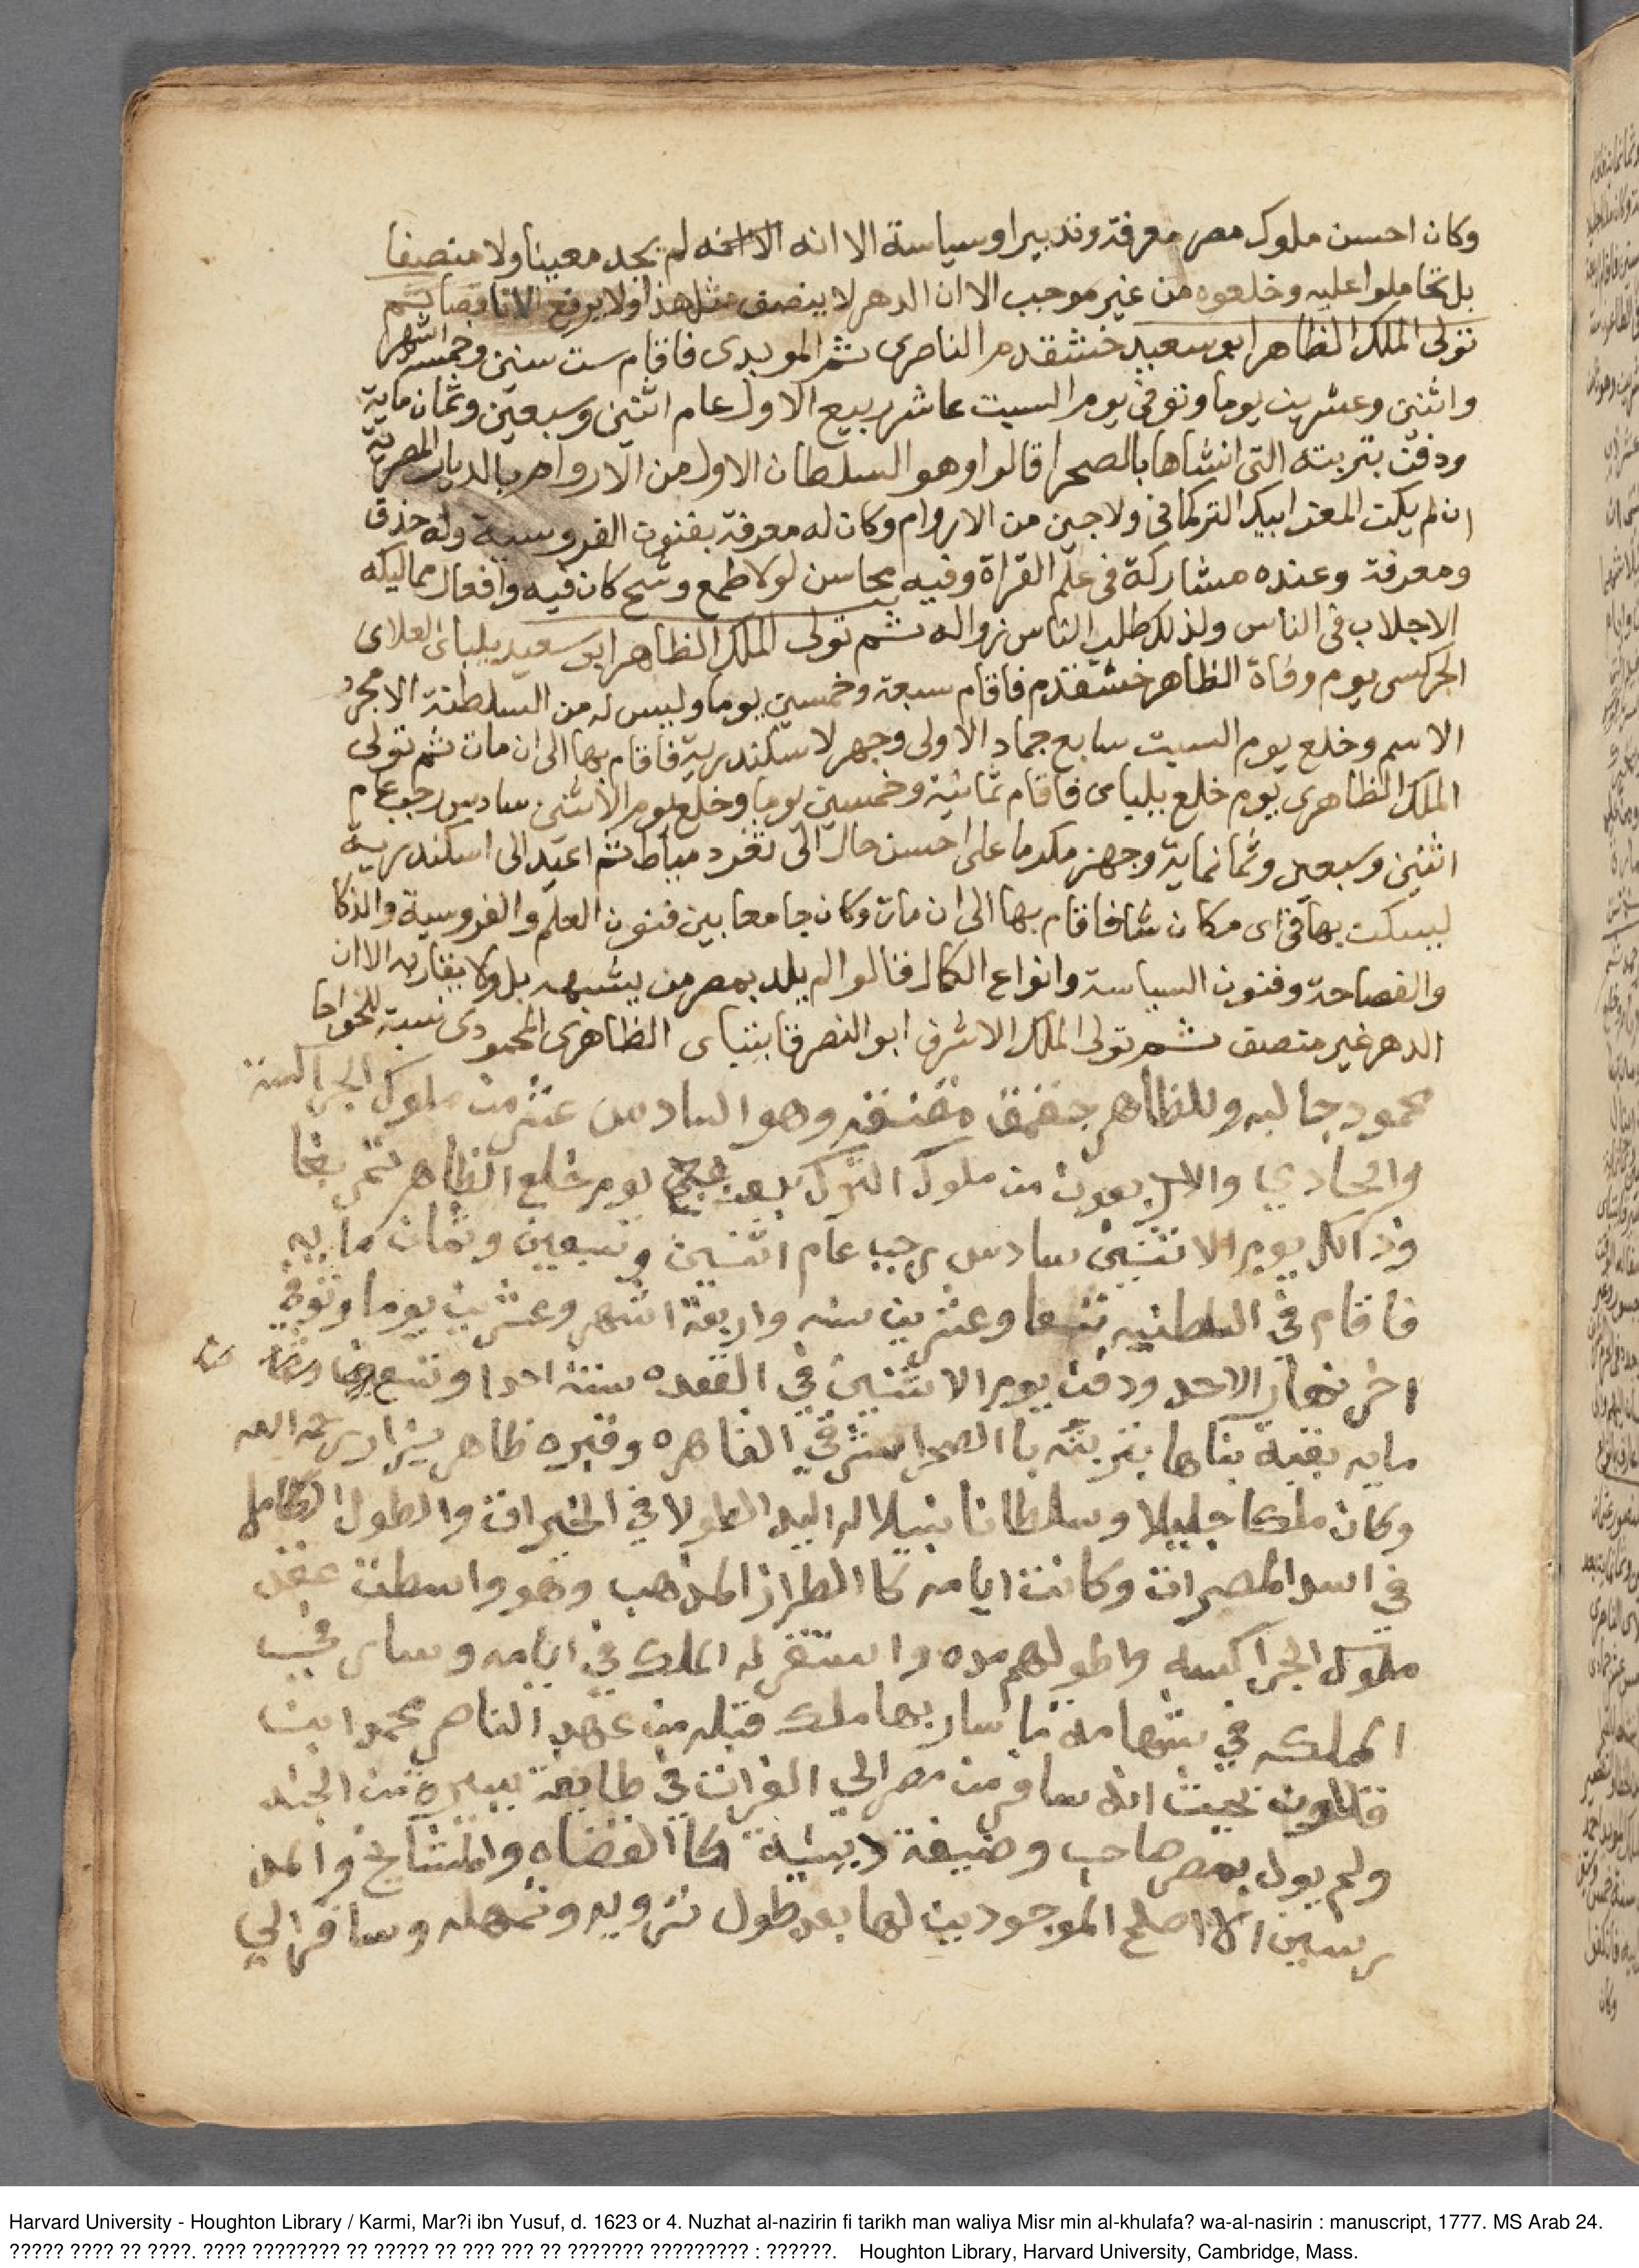 وكان احسن ملوك مصر معرفة وتدبيرا وسياسة الا انه لم يجد معينا ولا منصفا
بل تحاملوا عليه وخلعوه من غير موجب الا ان الدهر لا ينصف مثل هذا ولا يرفع الا ناقصا ثم
تولى الملك الظاهر ابو سعيد خشقدم الناصرى ثم المويدى فاقام ست سنين وخمسة اشهر
واثنين وعشرين يوما وتوفى يوم السبت عاشر ربيع الاول عام اثنين وسبعين وثمان ماية
ودفن بتربته التى انشاها بالصحرا قالوا وهو السلطان الاول من الاروام بالديار المصرية
ان لم يكن المعز ايبك التركمانى ولاجين من الاروام وكان له معرفة بفنون الفروسية وله حذق
ومعرفة وعنده مشاركة فى علم القراة وفيه محاسن لولا طمع وشح كان فيه وافعال مماليكه
الاجلاب فى الناس ولذلك طلب الناس زواله ثم تولى الملك الظاهر ابو سعيد يلباى العلاى
الجركسى يوم وفاة الظاهر خشقدم فاقام سبعة وخمسين يوما وليس له من السلطنة الا مجرد
الاسم وخلع يوم السبت سابع جماد الاولى وجهز لاسكندرية فاقام بها الى ان مات ثم تولى
الملك الظاهرى يوم خلع يلباى فاقام ثمانية وخمسين يوما وخلع يوم الاثنين سادس رجب عام
اثنين وسبعين وثمانماية وجهز مكرما على احسن حال الى ثغر دمياط ثم اعيد الى اسكندرية
ليسكن بها فى اى مكان شا فاقام بها الى ان مات وكان جامعا بين فنون العلم والفروسية والذكا
والفصاحة وفنون السياسة وانواع الكمال فقالوا لم يلد بمصر من يشبهه بل ولا يقاربه الا ان
الدهر غير منصف ثم تولى الملك الاشرف ابو النصر قايتباى الظاهرى المحمودى نسبة للخواجا
محمود جالبه وللظاهر جقمق معتقه وهو السادس عشر من ملوك الجراكسة
والحادي والاربعون من ملوك الترك يوم خلع الظاهر تمر بغا
وذالك يوم الاثنين سادس رجب عام اثنين وسبعين وثمان مايه
فاقام في السلطنيه تسعا وعشرين سنه واربعة اشهر وعشرين يوما وتوفي
اخر نهار الاحد ودفن يوم الاثنين في القعده سنة احدا وتسع
مايه بقبة بناها بتربته باالصحرا شرقي القاهره وقبره ظاهر يزار رحمه الله
وكان ملكا جليلا وسلطانا نبيلا له اليد الطولا في الخيرات والطول الكامل
في اسدا المصرات وكانت ايامه كاالطراز المذهب وهو واسطت عقد
ملوك الجراكسه واطولهم مده واستقر له الملك في ايامه وسار في
المملكه في شهامه ما سار بها ملك قبله من عهد الناصر محمد ابن
قلاون بحيث انه سافر من مصر الي الفرات في طايفة يسيره من الجند
ولم يول بمصر صاحب وضيفة دينية كاالقضاه والمشايخ والمد
رسين الا اصلح الموجودين لها بعد طول ترويه وتمهله وسافر الي
Harvard University - Houghton Library / Karmi, Mar?i ibn Yusuf, d. 1623 or 4. Nuzhat al-nazirin fi tarikh man waliya Misr min al-khulafa? wa-al-nasirin : manuscript, 1777. MS Arab 24.
????? ???? ?? ????. ???? ???????? ?? ????? ?? ??? ??? ?? ??????? ????????? : ??????. Houghton Library, Harvard University, Cambridge, Mass.